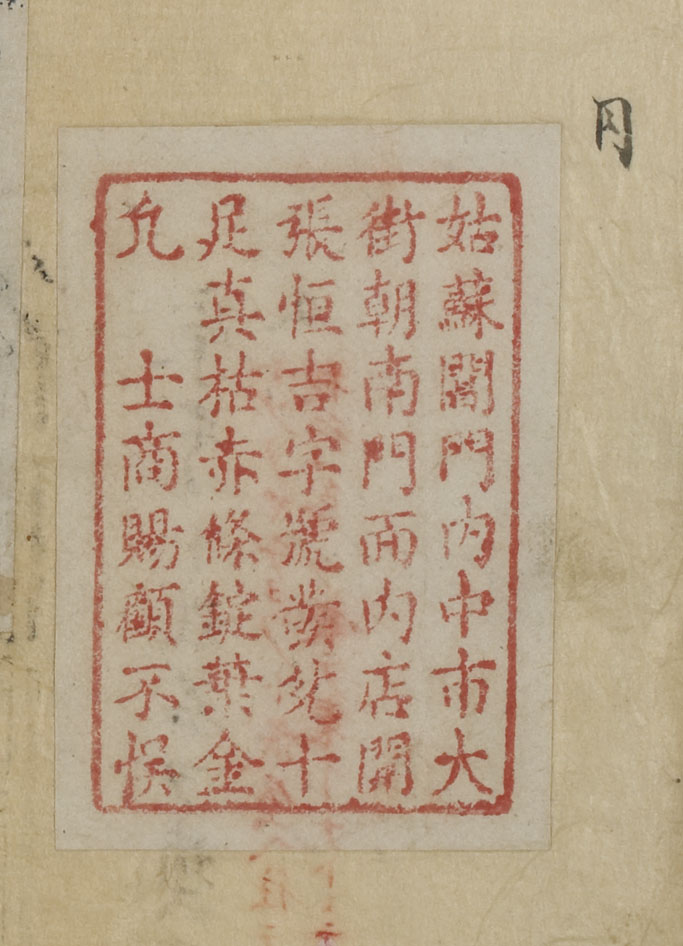 姑蘇閶門內中市大
街朝南門面內店開
張恒吉字號兌十
足真枯赤條錠葉金
凡 士商賜顧不悞